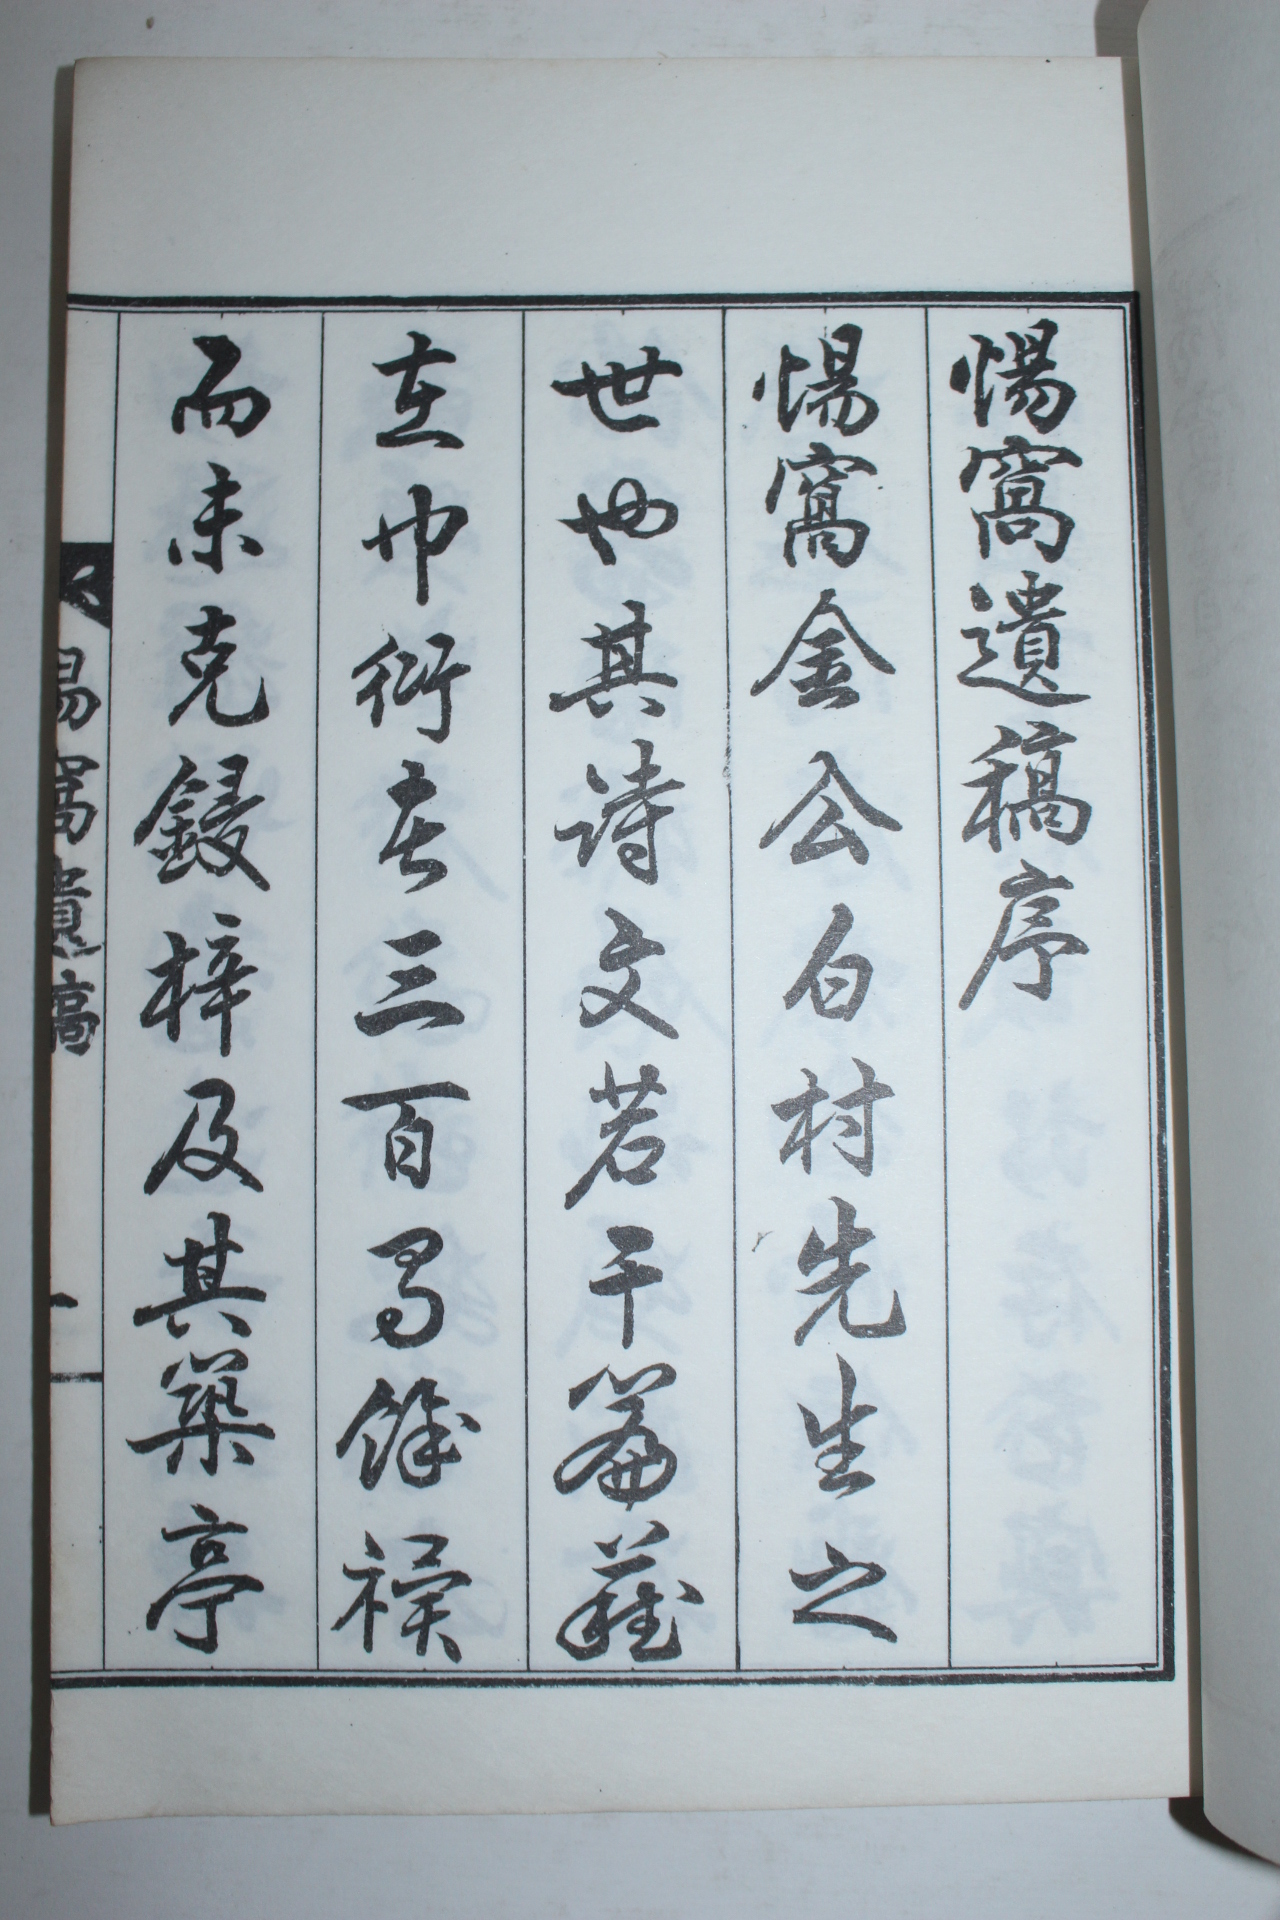 惕窩遺稿序
惕窩金公白村先生之
世也其詩文若干篇蔵
在巾衍者三百旬餘禩
而未克鋟梓及其築亭
惕窩遺稿
一